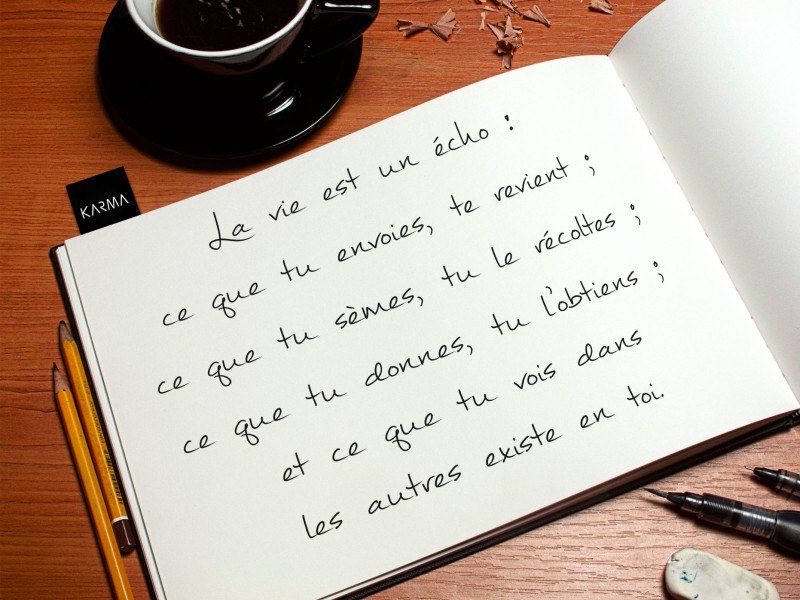 KARMA
La vie est un écho :
ce que tu envoies, te revient ;
ce que tu sèmes, tu le récoltes ;
ce que tu donnes, tu l'obtiens ;
et ce que tu vois dans
les autres existe en toi.